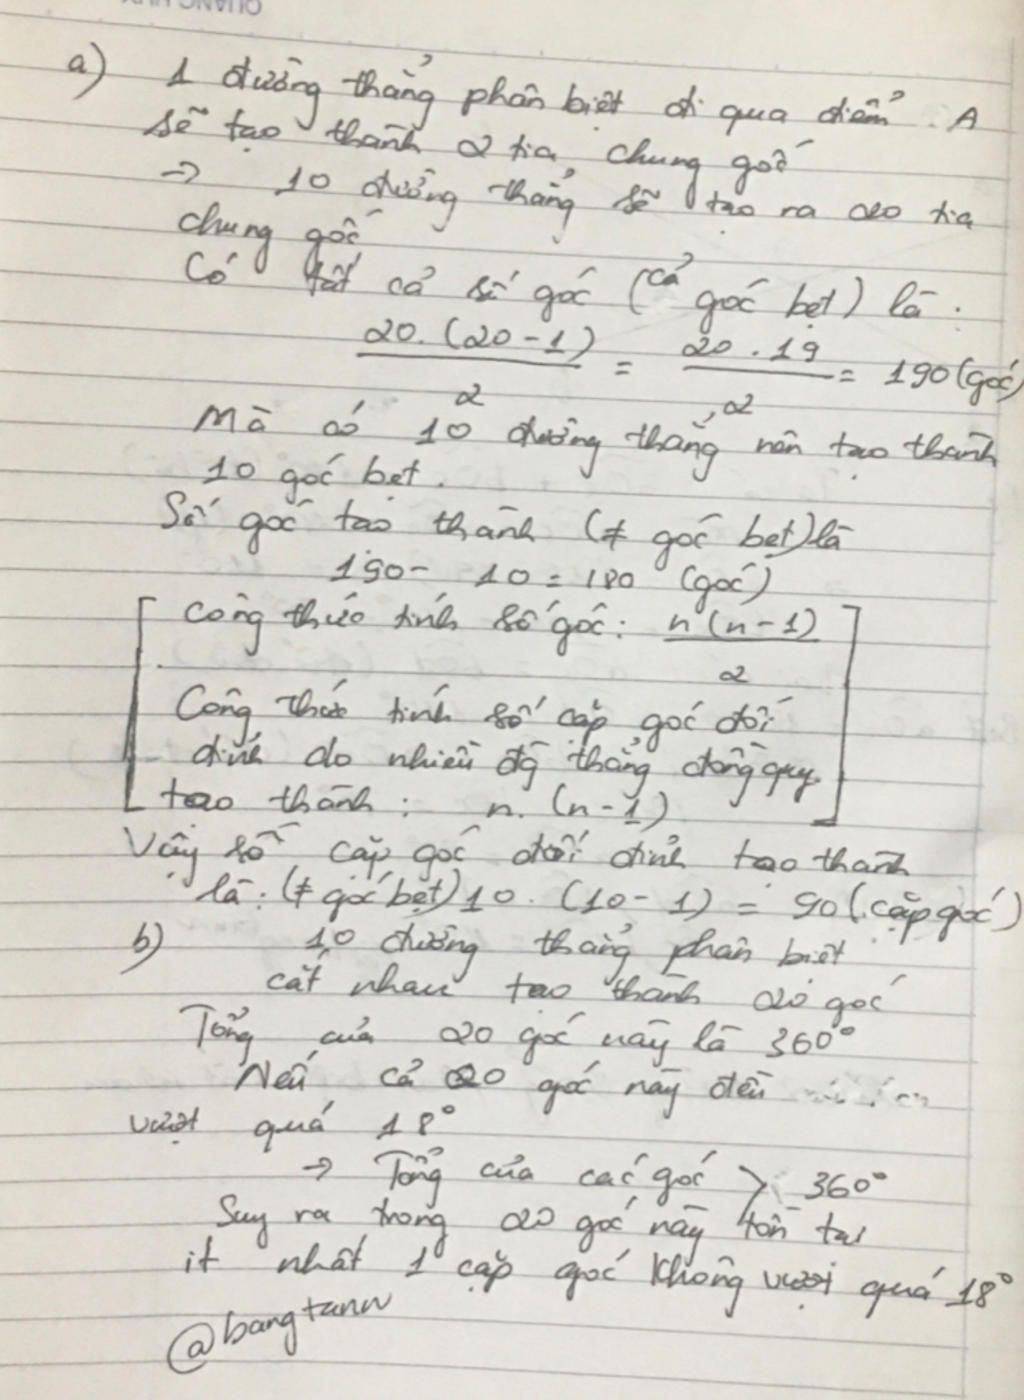 a) 1 đường thẳng phân biệt đi qua điểm A
sẽ tạo thành 2 tia chung gốc
→ 10 đường thẳng sẽ tạo ra 20 tia
chung gốc
Có tất cả số góc (cả góc bẹt) là:
20.(20-1)/2 = 20.19/2 = 190 (góc)
Mà có 10 đường thẳng nên tạo thành
10 góc bẹt.
Số góc tạo thành (≠ góc bẹt) là
190 - 10 = 180 (góc)
[ Công thức tính số góc: n(n-1)/2
Công thức tính số cặp góc đối
đỉnh do nhiều đg thẳng đồng quy
tạo thành: n.(n-1) ]
Vậy số cặp góc đối đỉnh tạo thành
là: (≠ góc bẹt) 10.(10-1) = 90 (cặp góc)
b) 10 đường thẳng phân biệt
cắt nhau tạo thành 20 góc
Tổng của 20 góc này là 360°
Nếu cả 20 góc này đều
vượt quá 18°
→ Tổng của các góc > 360°
Suy ra trong 20 góc này tồn tại
ít nhất 1 cặp góc không vượt quá 18°
@bangtanw